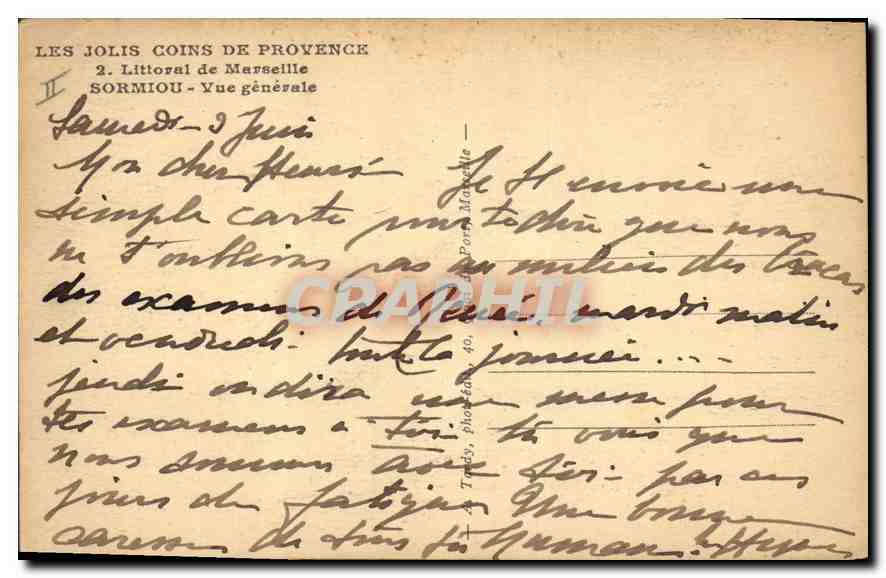 LES JOLIS COINS DE PROVENCE
2. Littoral de Marseille
SORMIOU - Vue générale
II
Samedi - 9 Juin
Mon cher Je t'envoie une
simple carte pour te dire que nous
ne t'oublions pas au milieu des tracas
des examens de Renée, mardi matin
et vendredi - toute la journée....
jeudi on dira une messe pour
tes examens à toi - tu vois que
nous sommes avec toi - par ces
jours de fatigues Une bonne
caresse de tous ta Maman.
A. Tardy, photo-édit., 40, Marseille
CPARHII